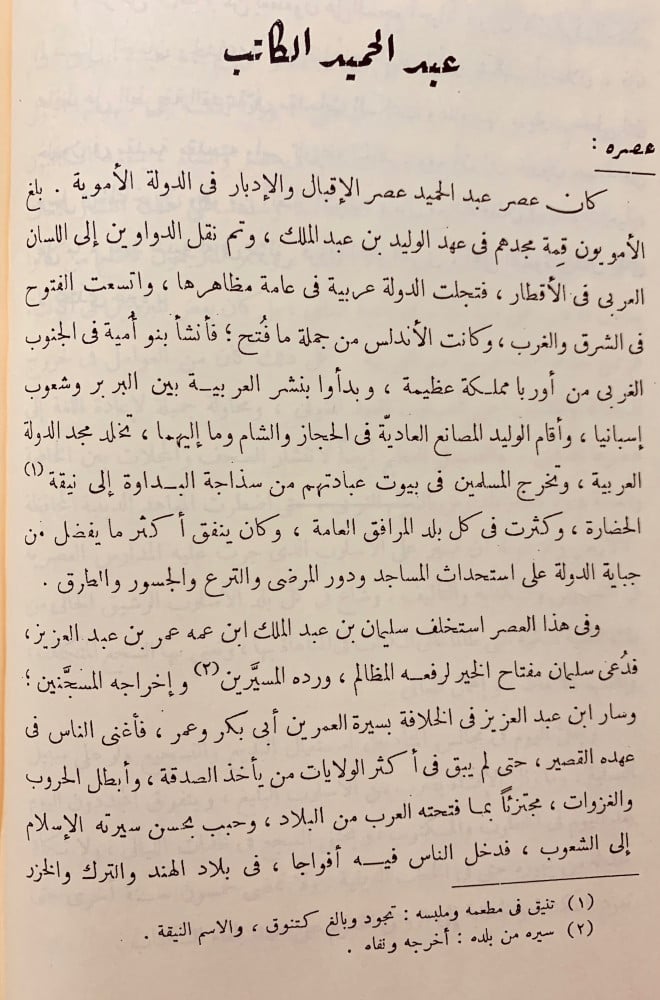 عبد الحميد الكاتب
عصره :
كان عصر عبد الحميد عصر الإقبال والإدبار فى الدولة الأموية . بلغ
الأمويون قِمة مجدهم فى عهد الوليد بن عبد الملك ، وتم نقل الدواوين إلى اللسان
العربى فى الأقطار ، فتجلت الدولة عربية فى عامة مظاهرها ، واتسعت الفتوح
فى الشرق والغرب ، وكانت الأندلس من جملة ما فُتح ؛ فأنشأ بنو أُمية فى الجنوب
الغربى من أوربا مملكة عظيمة ، وبدأوا بنشر العربية بين البربر وشعوب
إسبانيا ، وأقام الوليد المصانع العاديّة فى الحجاز والشام وما إليهما ، تخلد مجد الدولة
العربية ، وتخرج المسلمين فى بيوت عبادتهم من سذاجة البداوة إلى نيقة (١)
الحضارة ، وكثرت فى كل بلد المرافق العامة ، وكان ينفق أكثر ما يفضل من
جباية الدولة على استحداث المساجد ودور المرضى والترع والجسور والطرق .
وفى هذا العصر استخلف سليمان بن عبد الملك ابن عمه عمر بن عبد العزيز ،
فدُعى سليمان مفتاح الخير لرفعه المظالم ، ورده المسيَّرين (٢) وإخراجه المسجَّنين ؛
وسار ابن عبد العزيز فى الخلافة بسيرة العمرين أبى بكر وعمر ، فأغنى الناس فى
عهده القصير ، حتى لم يبق فى أكثر الولايات من يأخذ الصدقة ، وأبطل الحروب
والغزوات ، مجتزئاً بما فتحته العرب من البلاد ، وحبب بحسن سيرته الإسلام
إلى الشعوب ، فدخل الناس فيه أفواجا ، فى بلاد الهند والترك والخزر
(١) تنيق فى مطعمه وملبسه : تجود وبالغ كتنوق ، والاسم النيقة .
(٢) سيره من بلده : أخرجه ونفاه .